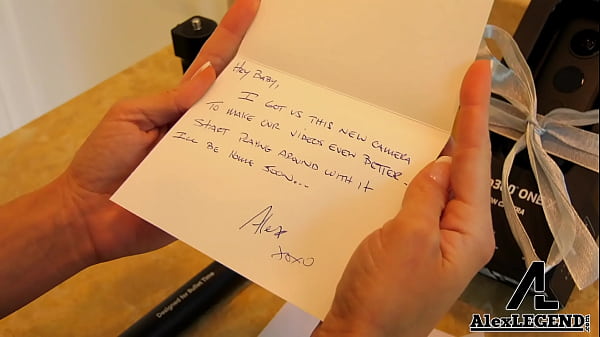 Hey Baby,
I got us this new camera
to make our videos even better.
Start playing around with it
I'll be home soon...
Alex
xoxo
Designed for Bullet Time
360 ONE X
ION CAMERA
AL
AlexLEGEND.